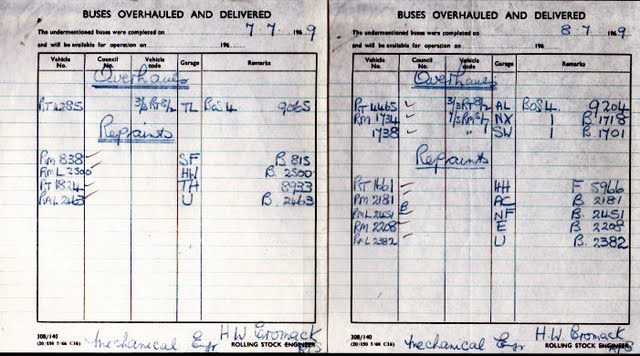 BUSES OVERHAULED AND DELIVERED
The undermentioned buses were completed on 7.7. 1969
and will be available for operation on 196
Vehicle No. Council No. Vehicle code Garage Remarks
Overhauls
RT 4285 3/3RT8/2 TL BOS 4 9065
Repaints
RM 838 SF B 815
RML 2500 HW B. 2500
RT 1824 TH 8933
RML 2463 U B. 2463
308/140
Mechanical Engr H.W. Cromack
ROLLING STOCK ENGINEER
BUSES OVERHAULED AND DELIVERED
The undermentioned buses were completed on 8 7 1969
and will be available for operation on 196
Vehicle No. Council No. Vehicle code Garage Remarks
Overhauls
RT 4465 3/3RT8/2 AL BOS 4. 9204
RM 1734 7/5RM5/7 NX 1 B 1718
1738 " " SW 1 B 1701
Repaints
RT 1661 HH F 5966
RM 2181 AC B. 2181
RML 2451 NF B. 2451
RM 2208 E B. 2208
RML 2382 U B. 2382
308/140
Mechanical Engr H.W. Cromack
ROLLING STOCK ENGINEER